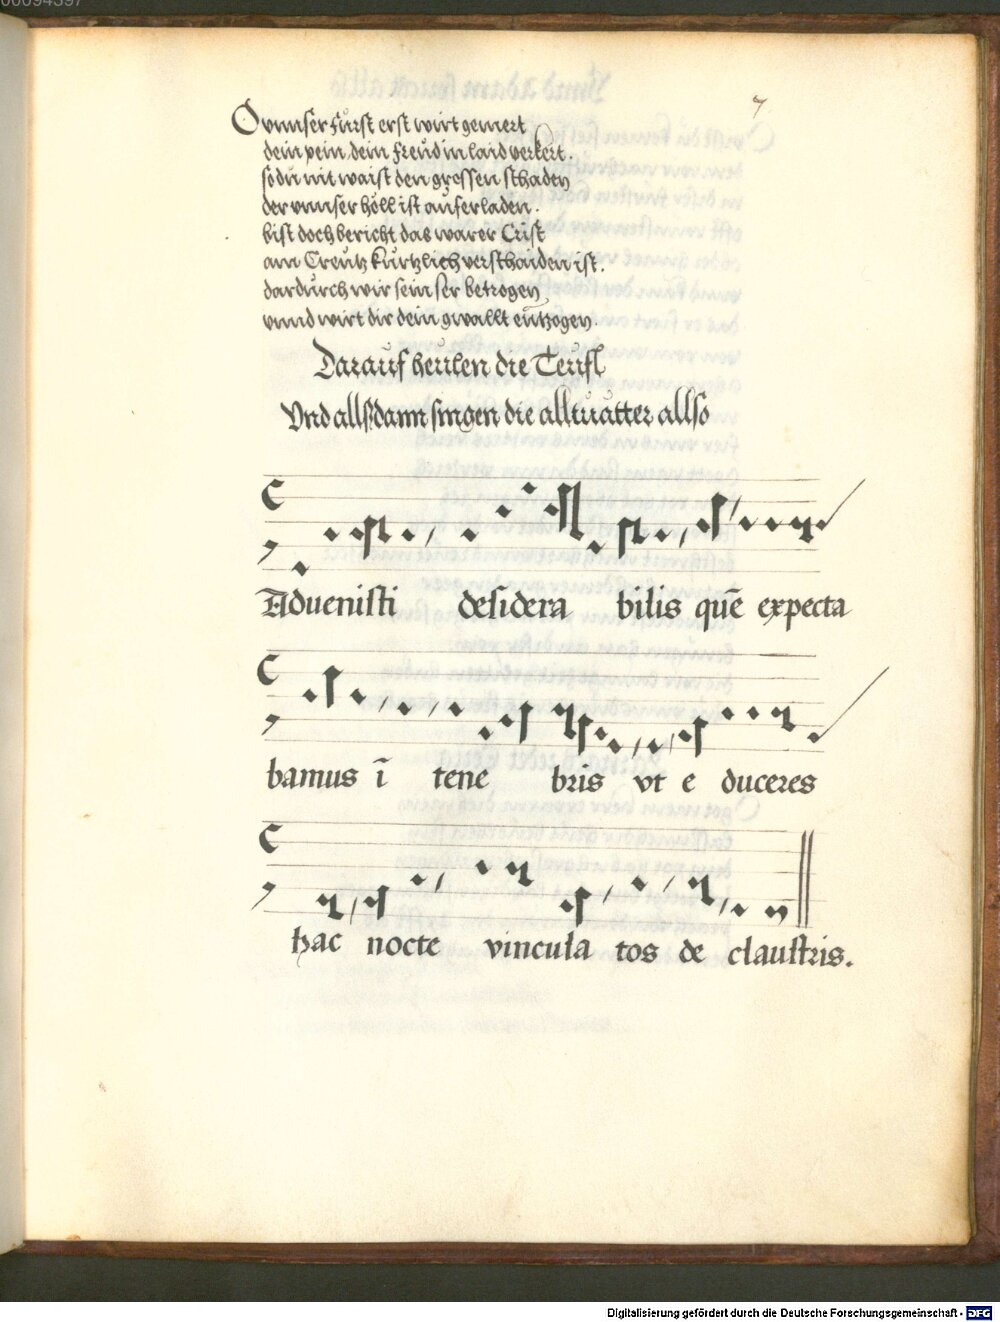 7
O vnnser fürst erst wirt gemert
dein pein, dein freüd in laid verkert.
so dü nit waist den grossen schaden
der vnnser höll ist aufgerladen.
bist doch bericht das warer Crist
am Creütz kürtzlich verschaiden ist.
dardürch wir sein ser betrogen
vnnd wirt dir dein gwallt entzogen.
Darauf heülen die Teüfl
Vnd allsdann singen die alltuätter allso
Aduenisti desidera bilis quē expecta
bamus ī tene bris vt e duceres
hac nocte vincula tos de claustris.
Digitalisierung gefördert durch die Deutsche Forschungsgemeinschaft - DFG